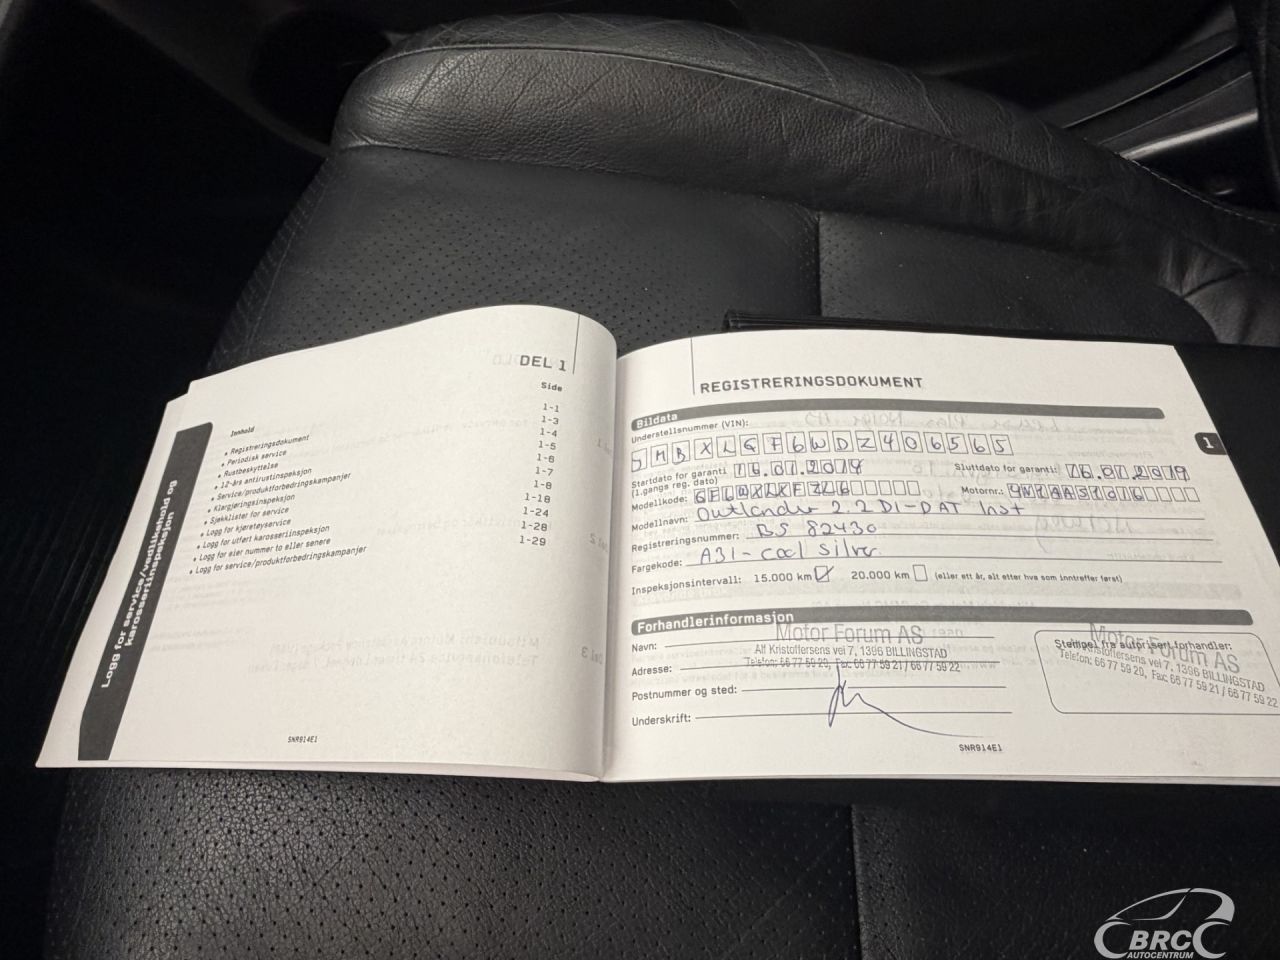 DEL 1
Side
Innhold
• Registreringsdokument 1-1
• Periodisk service 1-3
• Rustbeskyttelse 1-4
• 12-års antirustinspeksjon 1-5
• Service/produktforbedringskampanjer 1-6
• Klargjøringsinspeksjon 1-7
• Sjekklister for service 1-8
• Logg for kjøretøyservice 1-18
• Logg for utført karosseriinspeksjon 1-24
• Logg for eier nummer to eller senere 1-28
• Logg for service/produktforbedringskampanjer 1-29
Logg for service/vedlikehold og
karosseriinspeksjon
SNR914E1
REGISTRERINGSDOKUMENT
1
Bildata
Understellsnummer (VIN):
JMBXLGF6WDZ406565
Startdato for garanti 16.01.2014 Sluttdato for garanti: 16.01.2019
(1.gangs reg. dato)
Modellkode: Motornr.:
Modellnavn: Outlander 2.2 DI-D AT Inst
Registreringsnummer: BS 82430
Fargekode: A31 - cool silver
Inspeksjonsintervall: 15.000 km 20.000 km (eller ett år, alt etter hva som inntreffer først)
Forhandlerinformasjon
Navn: Motor Forum AS
Alf Kristoffersens vei 7, 1396 BILLINGSTAD
Adresse: Telefon: 66 77 59 20, Fax: 66 77 59 21 / 66 77 59 22
Postnummer og sted:
Underskrift:
Stempel fra autorisert forhandler:
Motor Forum AS
Kristoffersens vei 7, 1396 BILLINGSTAD
Telefon: 66 77 59 20, Fax: 66 77 59 21 / 66 77 59 22
SNR914E1
BRC
AUTOCENTRUM